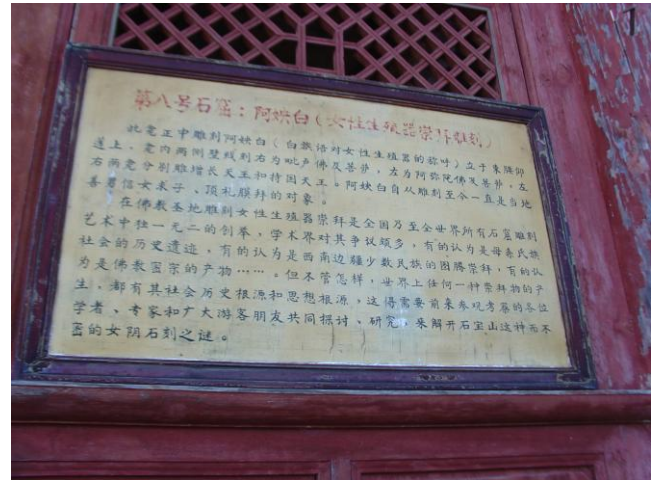 第八号石窟：阿姎白（女性生殖器崇拜雕刻）
此窟正中雕刻阿姎白（白族语对女性生殖器的称呼）立于束腰仰
道上，窟内两侧壁线刻右为毗卢佛及菩萨，左为阿弥陀佛及菩萨，左
右两窟分别雕增长天王和持国天王。阿姎白自从雕刻至今一直是当地
善男信女求子、顶礼膜拜的对象。
在佛教圣地雕刻女性生殖器崇拜是全国乃至全世界所有石窟雕刻
艺术中独一无二的创举，学术界对其争议颇多，有的认为是母系氏族
社会的历史遗迹，有的认为是西南边疆少数民族的图腾崇拜，有的认
为是佛教密宗的产物……。但不管怎样，世界上任何一种崇拜物的产
生，都有其社会历史根源和思想根源，这得需要前来参观考察的各位
学者、专家和广大游客朋友共同探讨、研究，来解开石宝山这神而不
密的女阴石刻之谜。